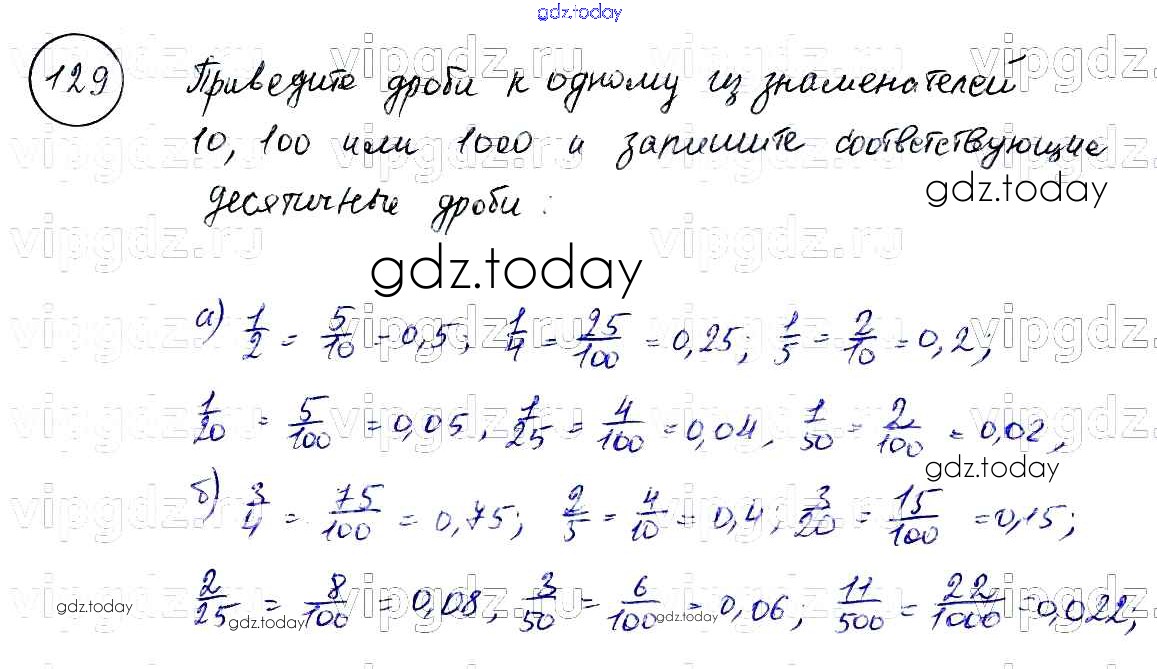 gdz.today
129 Приведите дроби к одному из знаменателей
10, 100 или 1000 и запишите соответствующие
gdz.today
десятичные дроби:
gdz.today
а) 1/2 = 5/10 = 0,5; 1/4 = 25/100 = 0,25; 1/5 = 2/10 = 0,2;
1/20 = 5/100 = 0,05, 1/25 = 4/100 = 0,04, 1/50 = 2/100 = 0,02;
gdz.today
б) 3/4 = 75/100 = 0,75; 2/5 = 4/10 = 0,4; 3/20 = 15/100 = 0,15;
2/25 = 8/100 = 0,08; 3/50 = 6/100 = 0,06; 11/500 = 22/1000 = 0,022;
gdz.today
gdz.today
gdz.today
vipgdz.ru